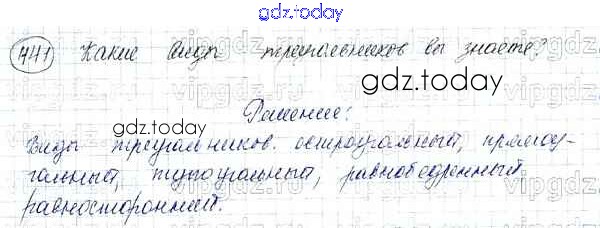 gdz.today
441 Какие виды треугольников вы знаете?
gdz.today
Решение:
gdz.today
Виды треугольников: остроугольный, прямоу-
гольный, тупоугольный, равнобедренный
равносторонний.